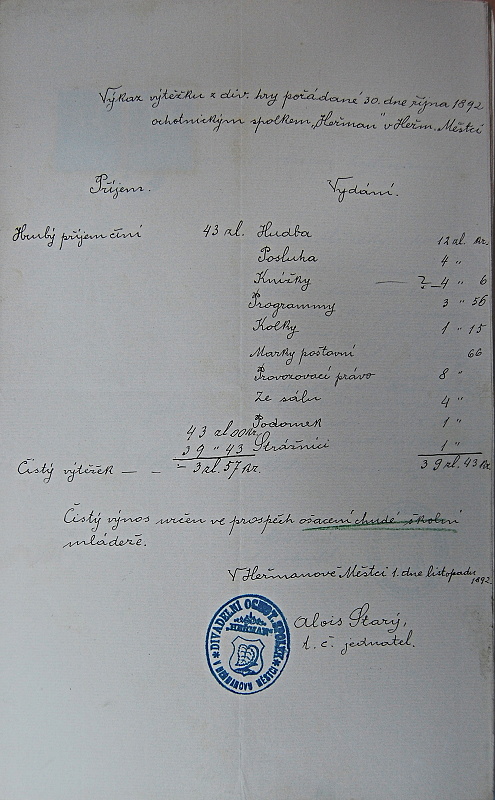 Výkaz výtěžku z div. hry pořádané 30. dne října 1892
ochotnickým spolkem „Heřman" v Heřm. Městci
Příjem. Vydání.
Hrubý příjem činí 43 zl. Hudba 12 zl. kr.
Posluha 4 "
Knížky 4 " 6
Programmy 3 " 56
Kolky 1 " 15
Marky poštovní 66
Provozovací právo 8 "
Ze sálu 4 "
Podomek 1 "
43 zl 00 kr.
39 " 43 Strážníci 1 "
Čistý výtěžek — - - 3 zl. 57 kr. 39 zl. 43 kr.
Čistý výnos určen ve prospěch ošacení chudé školní
mládeže.
V Heřmanově Městci 1. dne listopadu 1892.
Alois Starý,
t. č. jednatel.
DIVADELNÍ OCHOT. SPOLEK
„HEŘMAN"
V HEŘMANOVĚ MĚSTCI